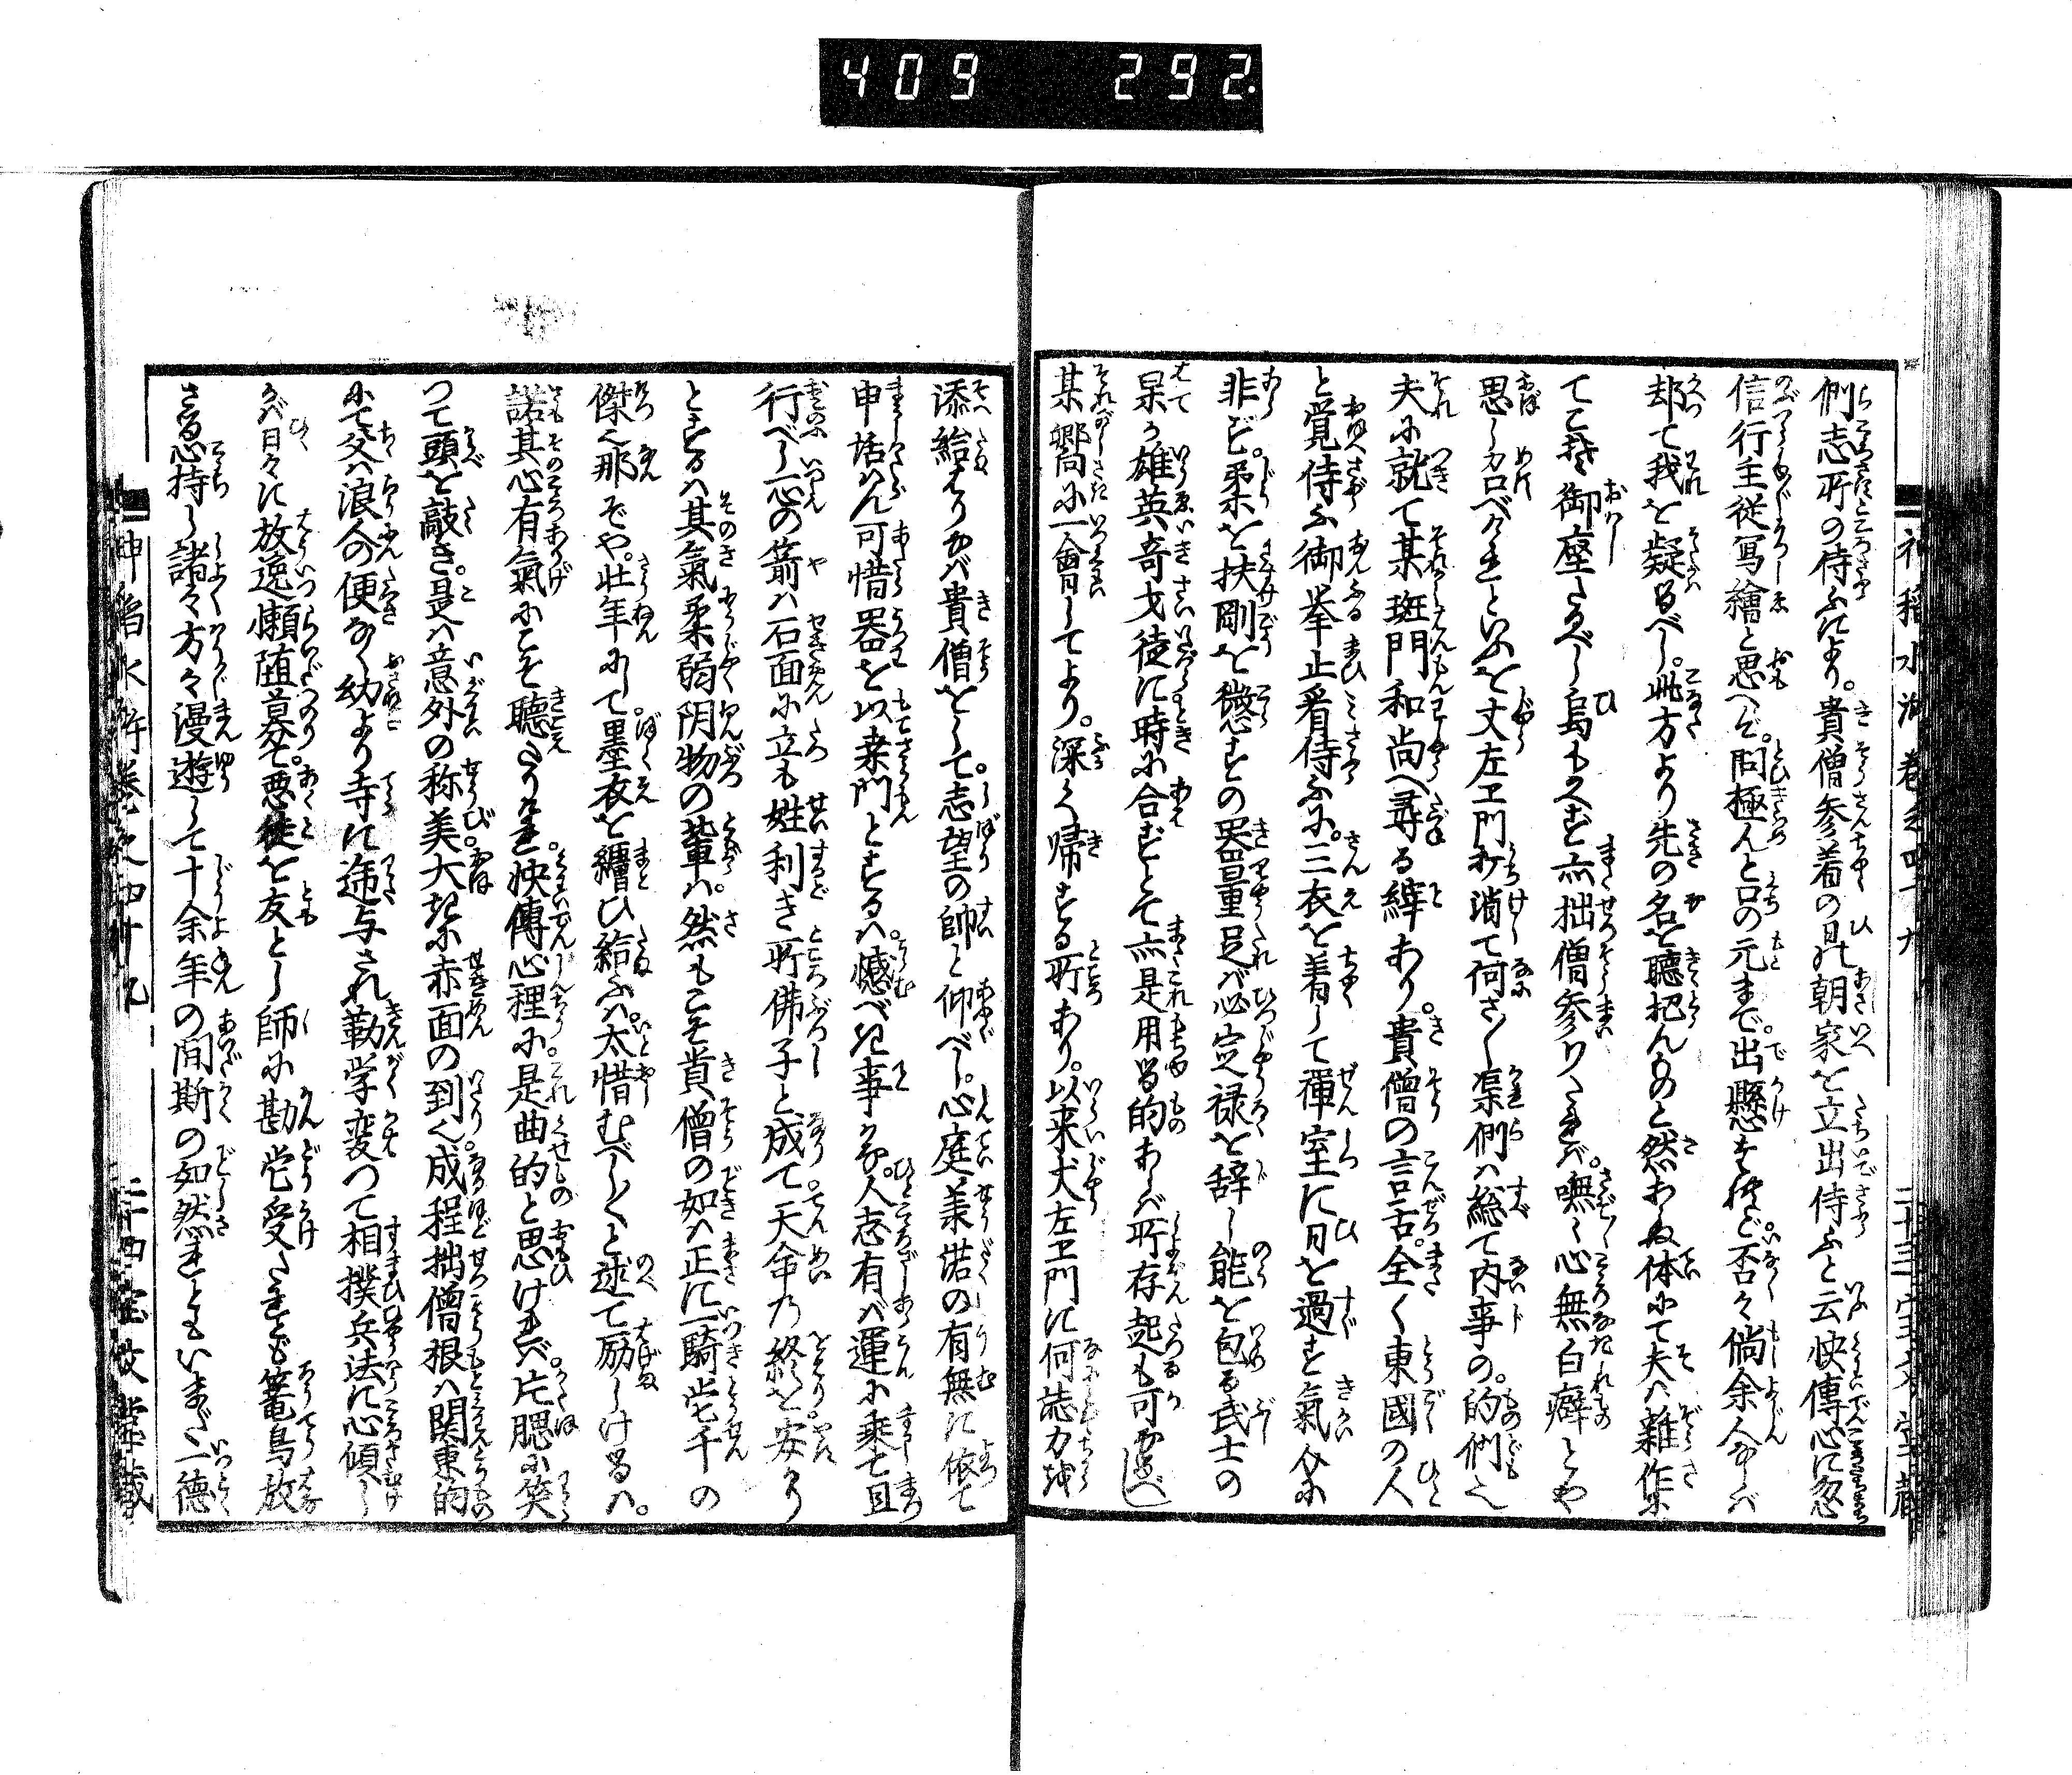 409 292
們志所の侍ふにより。貴僧参着の日れ朝家を立出侍ふと云怏傳心に忽
信行主従冩繪と思へど。問極んと口の元まで。出懸きれど否々倘余人ならバ
却て我を疑るべし。此方より先の名を聴把んものと然あらぬ体にて夫ハ難作
てこそ御座さるべし烏もつかず亦拙僧参りたれバ。嘸し心無白癖とや
思しカロべくといふを丈左ヱ門打消て何さし渠們ハ総て内事の。的們に
夫に就て某斑門和尚へ尋る縡あり。貴僧の言舌。全く東國の人
と覚侍ふ御挙止看侍ふに。三衣を着して禪室に日を過す氣分に
非ず。柔を扶剛を懲すの器量足バ必定禄を辞し能を包る武士の
果か雄英奇才徒に時に合ずとて亦是用る的あらバ所存起も可なるべし
某郷向に一會してより。深く帰する所あり。以来丈左ヱ門に何誌力を
添給はりなバ貴僧をして。志望の帥と仰べし。心庭兼諾の有無に依て
申話ハん可惜器を以桒門とするハ。憾べき事かな。人志有バ運に乗て且
行べし一心の箭ハ石面に立も姓利き所佛子と成て。天命の終を安かり
とするハ其氣柔弱陰物の輩ハ。然もこそ貴僧の如ハ正に一騎當千の
傑く那ぞや。壮年にして。墨衣を纏ひ給ふハ。太惜むべしと述て励しけるハ。
諾其心有氣にこそ聴たりけれ。怏傳心裡に。是曲的と思けれバ。片腮に笑
つて頭を敲き。是ハ意外の称美。大に赤面の到く成程拙僧根ハ関東的
にて父ハ浪人の便なく幼より寺に遞与され勤学変つて相撲兵法に心傾し
かバ日々に放逸懶随募て。悪徒を友とし師に勘當受たれども篭鳥放
さる心持し諸々方々漫遊して十余年の间斯の如然れともいまだ一徳
神稲水滸 巻之四十九
二十三 宝文堂蔵
神稲水滸 巻之四十九
二十四 宝文堂蔵